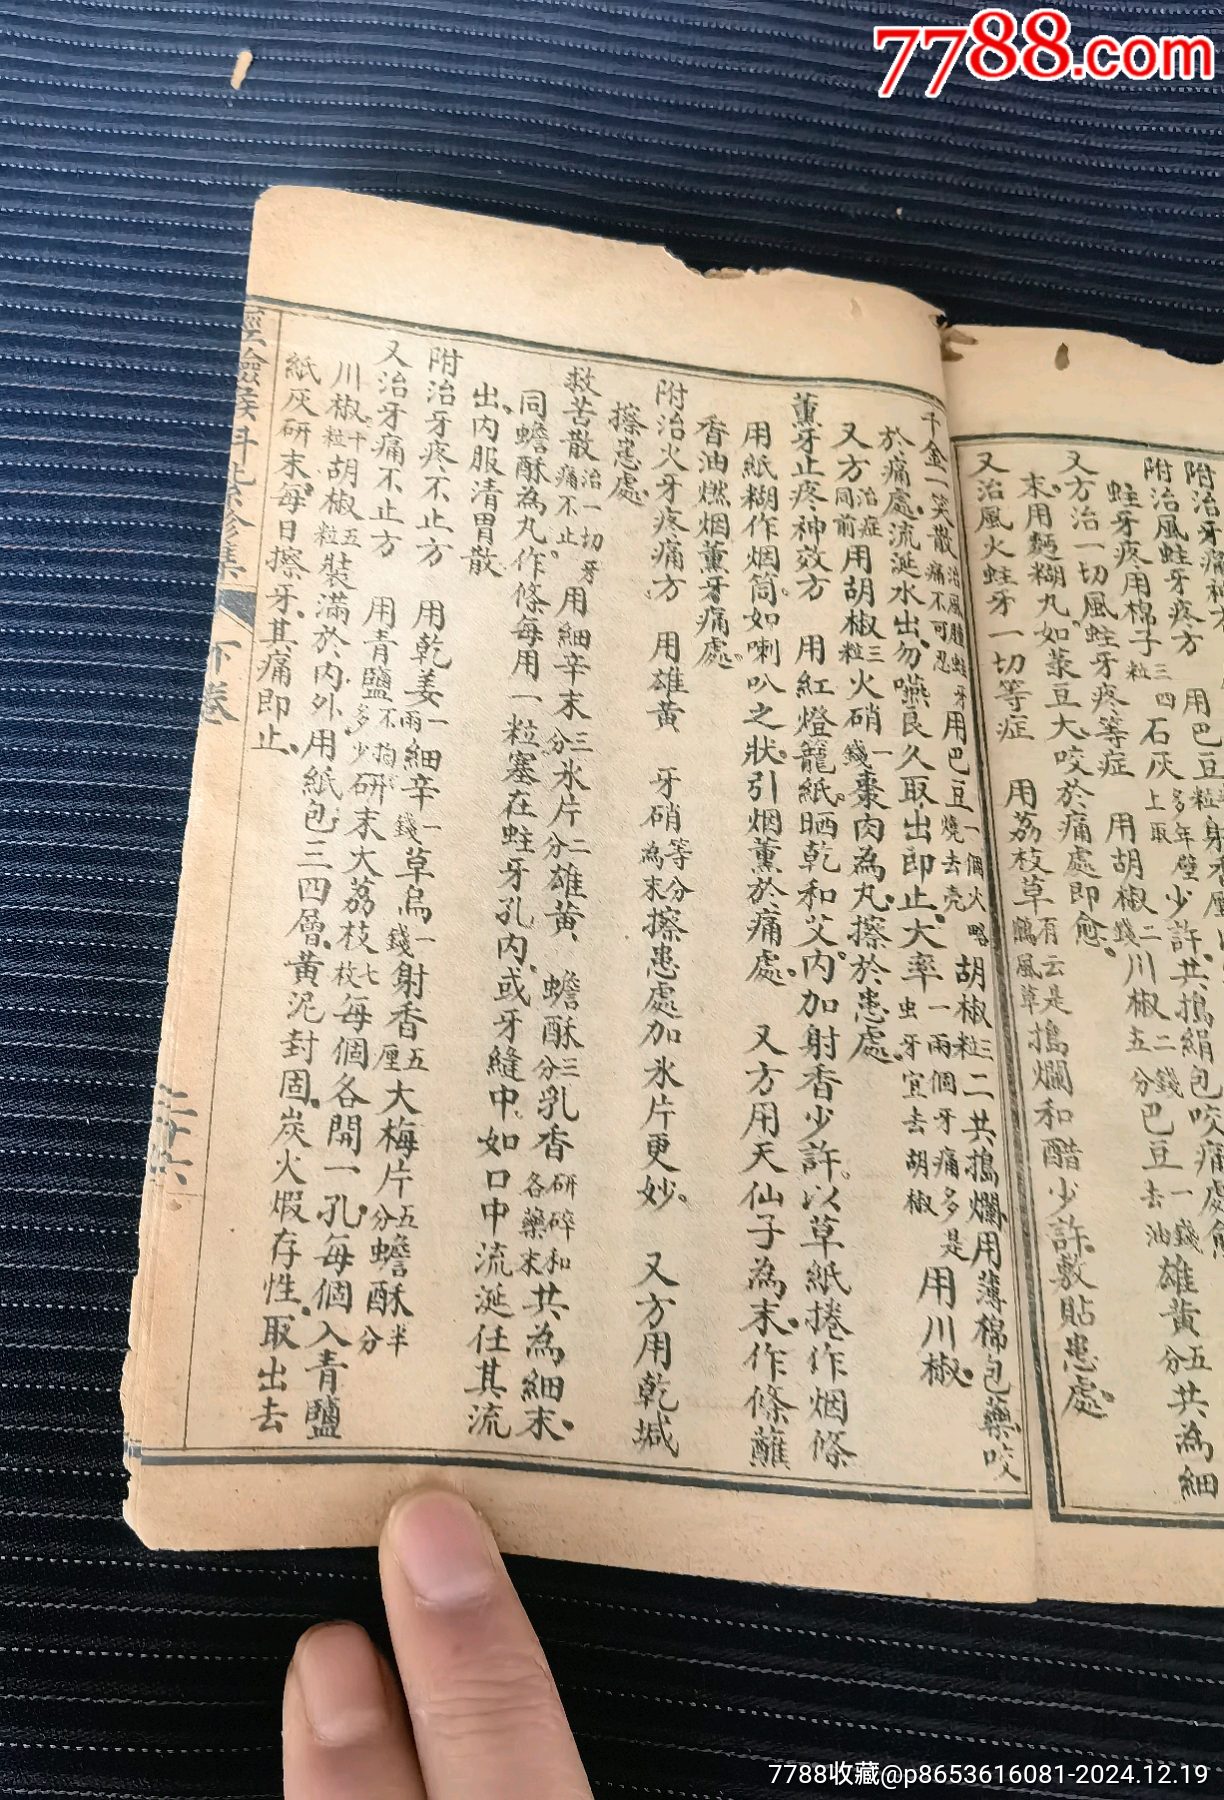 7788.com
附治牙痛神
附治風蛀牙疼方　用巴豆
蛀牙疼用棉子三四粒石灰多年壁上取少許共搗絹包咬痛處
又方治一切風蛀牙疼等症　用胡椒二錢川椒五分巴豆一錢去油雄黃五分共為細
末用麵糊丸如菉豆大咬於痛處即愈
又治風火蛀牙一切等症　用荔枝草有云是鵝風草搗爛和醋少許敷貼患處
千金一笑散治風腫蛀牙痛不可忍用巴豆一個火略燒去壳胡椒三粒二共搗爛用薄棉包藥咬
於痛處流涎水出勿嚥良久取出即止大率一兩個牙痛多是虫牙宜去胡椒用川椒
又方治症同前用胡椒三粒火硝一錢棗肉為丸擦於患處
薰牙止疼神效方　用紅燈籠紙晒乾和艾內加射香少許以草紙捲作烟條
用紙糊作烟筒如喇叭之狀引烟薰於痛處　又方用天仙子為末作條蘸
香油燃烟薰牙痛處
附治火牙疼痛方　用雄黃　牙硝等分為末擦患處加氷片更妙　又方用乾堿
擦患處
救苦散治一切牙痛不止用細辛末三分氷片二分雄黃　蟾酥三分乳香研碎和各藥末共為細末
同蟾酥為丸作條每用一粒塞在蛀牙孔內或牙縫中如口中流涎任其流
出內服清胃散
附治牙疼不止方　用乾姜一兩細辛一錢草烏一錢射香五厘大梅片五分蟾酥半分
又治牙痛不止方　用青鹽不拘多少研末大荔枝七枝每個各開一孔每個入青鹽
川椒十粒胡椒五粒裝滿於內外用紙包三四層黃泥封固炭火煆存性取出去
紙灰研末每日擦牙其痛即止
經驗喉科紫珍集　下卷　三十六
7788收藏@p8653616081-2024.12.19